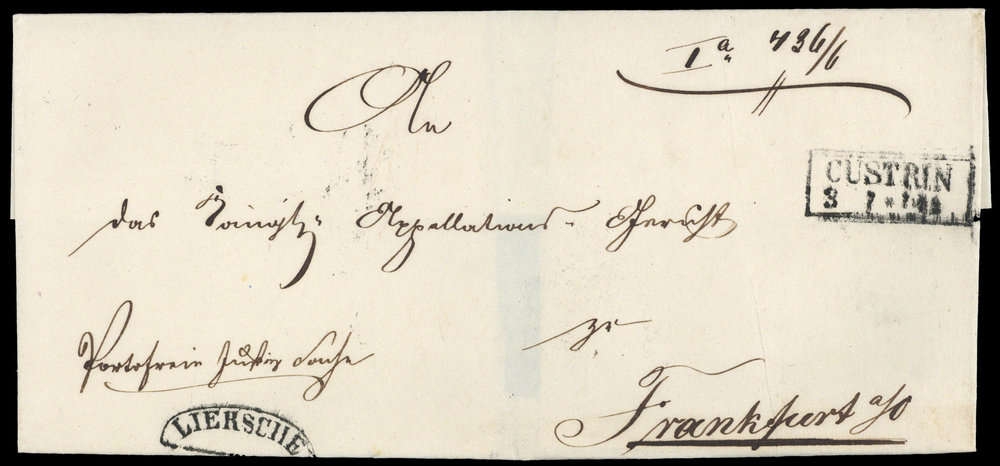 Iª 436/6
An
CUSTRIN
3 7
das Königl. Appellations-Gericht
zu
Portofreie Justiz Sache
Frankfurt a/O
LIERSCHE